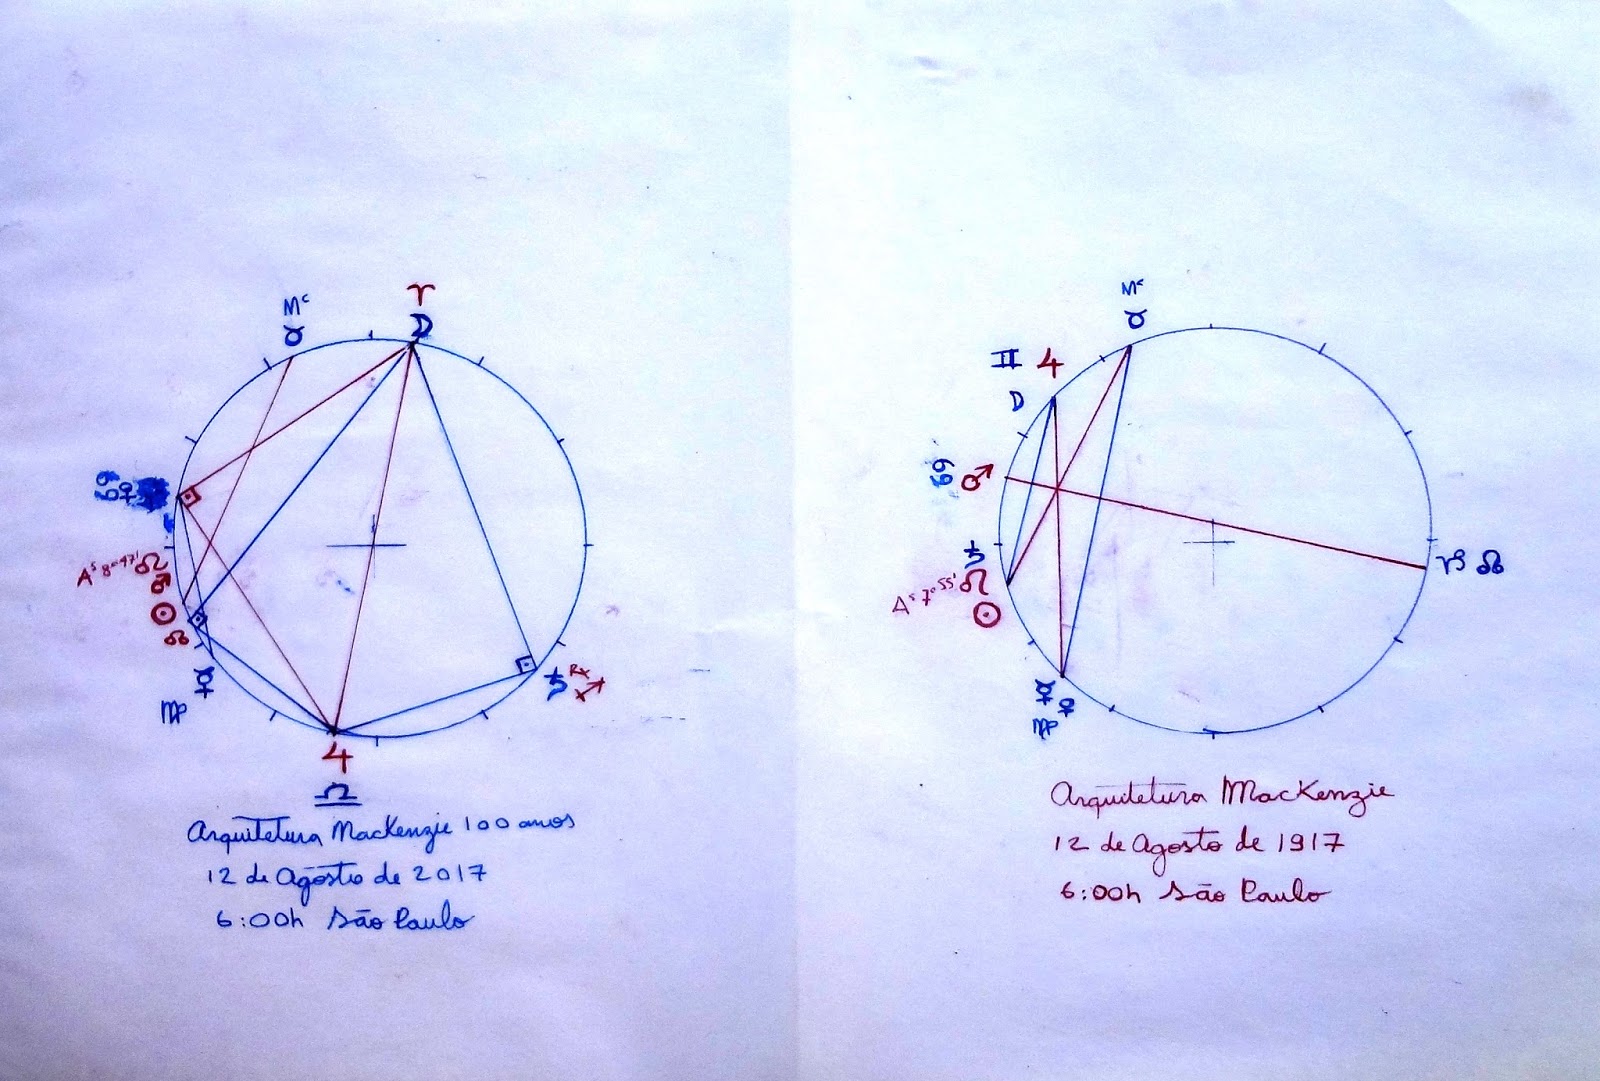 Mᶜ
♉
♈
☽
♋ ♀
Aˢ 8º47' ♌
♂
☉
☊
☿
♍
♃
♎
♄ Rx
♐
Arquitetura Mackenzie 100 anos
12 de Agosto de 2017
6:00h São Paulo
Mᶜ
♉
♊ ♃
☽
♋ ♂
♄
Aˢ 7º55' ♌
☉
☿ ♀
♍
♑ ☊
Arquitetura MacKenzie
12 de Agosto de 1917
6:00h São Paulo